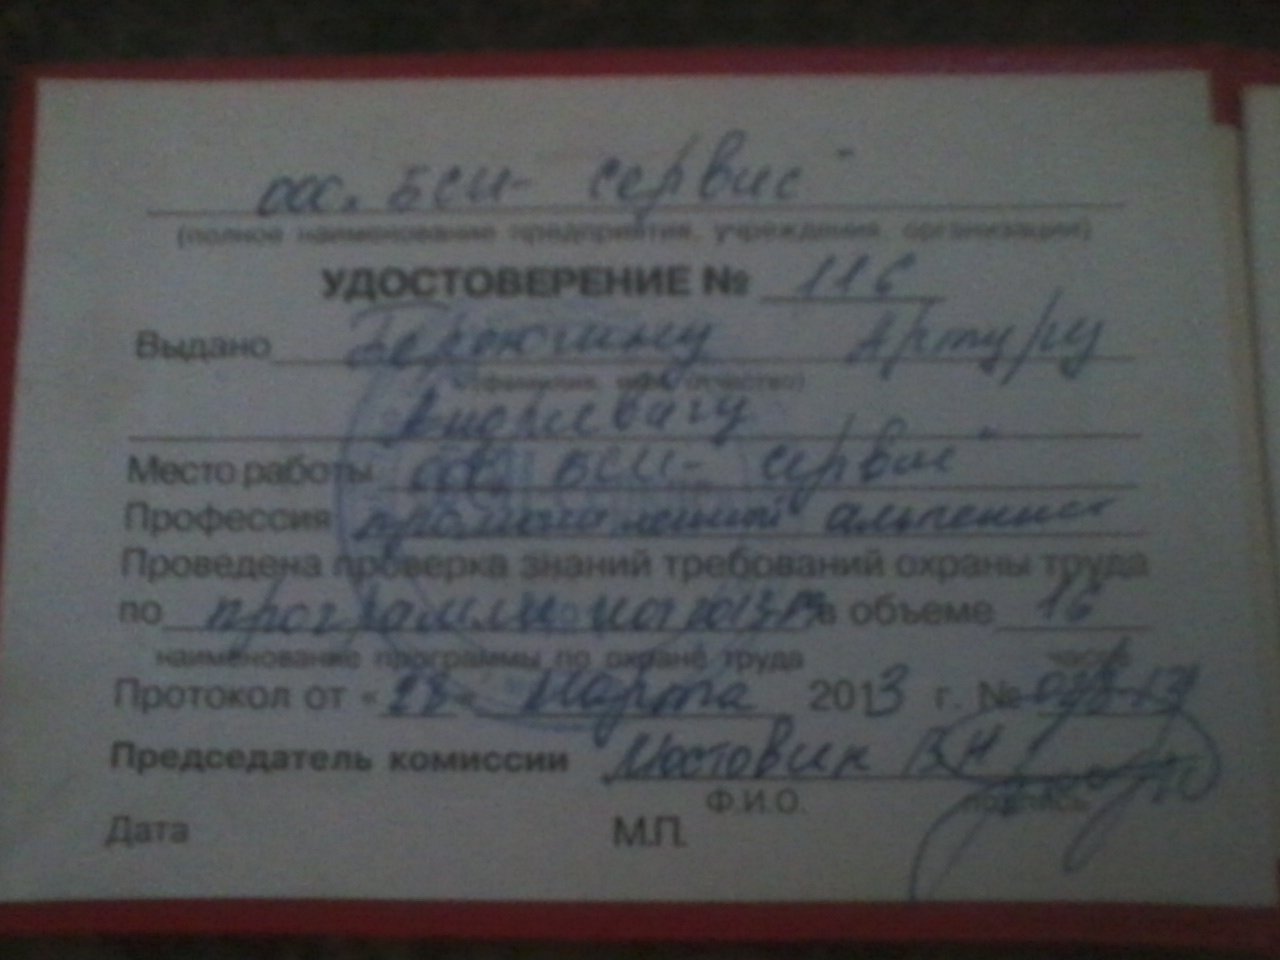 ооо „БСИ - сервис"
(полное наименование предприятия, учреждения, организации)
УДОСТОВЕРЕНИЕ № 116
Выдано Артуру
(фамилия, имя, отчество)
Андреевичу
Место работы ооо „БСИ - сервис"
Профессия промышленный альпинист
Проведена проверка знаний требований охраны труда
по программы в объеме 16
наименование программы по охране труда часов
Протокол от « 28 » Марта 2013 г. №
Председатель комиссии Мостовик В Н
Ф.И.О. подпись
Дата М.П.